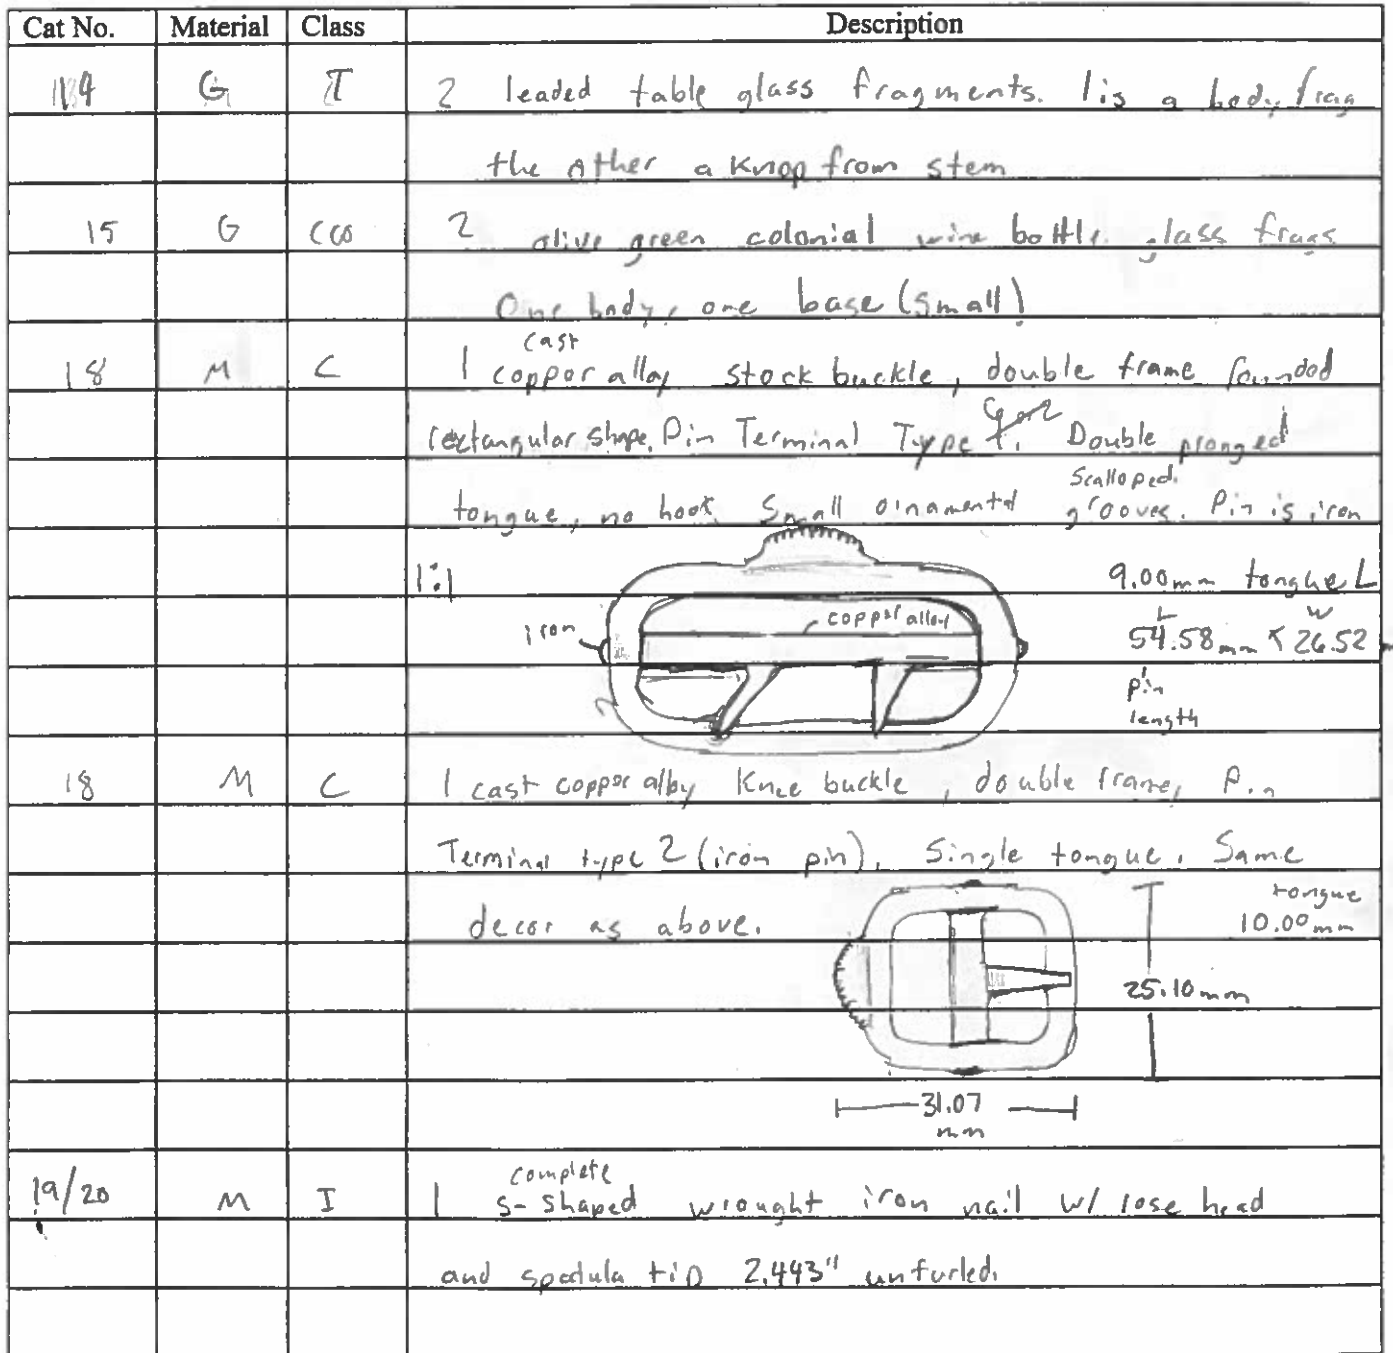 Cat No. Material Class Description
G T 2 leaded table glass fragments. 1 is a body frag
the other a knop from stem
15 G 2 olive green colonial wine bottle glass frags
One body, one base (small)
cast
18 M C 1 copper alloy stock buckle, double frame rounded
rectangular shape. Pin Terminal Type Double pronged
scalloped
tongue, no hook. Small ornamental grooves. Pin is iron
1:1 9.00mm tongue L
iron copper alloy L W
54.58mm x 26.52
pin
length
18 M C 1 cast copper alloy Knee buckle, double frame, Pin
Terminal type 2 (iron pin), Single tongue. Same
decor as above. tongue
10.00mm
25.10mm
31.07
mm
complete
19/20 M I 1 S-shaped wrought iron nail w/ rose head
and spatula tip 2.443" unfurled.